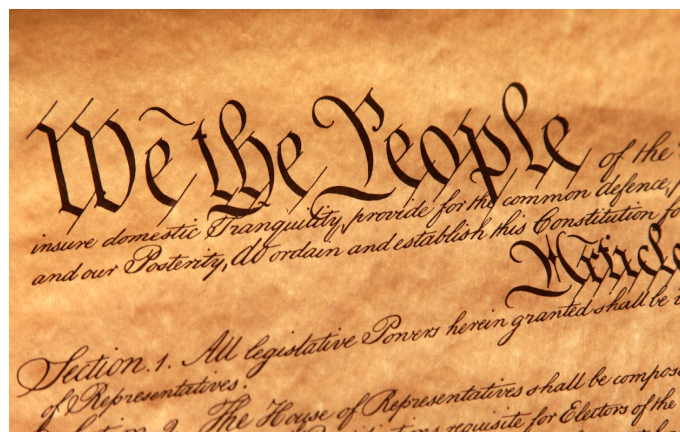 We the People of the
insure domestic Tranquility, provide for the common defence,
and our Posterity, do ordain and establish this Constitution fo
Article
Section. 1. All legislative Powers herein granted shall be
of Representatives.
The House of Representatives shall be compos
requisite for Electors of the